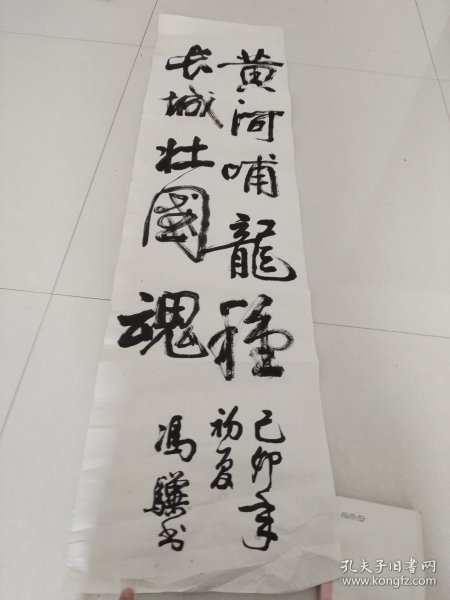 黄河哺龍種
长城壮國魂
己卯年
初夏
冯骥书
孔夫子旧书网
www.kongfz.com